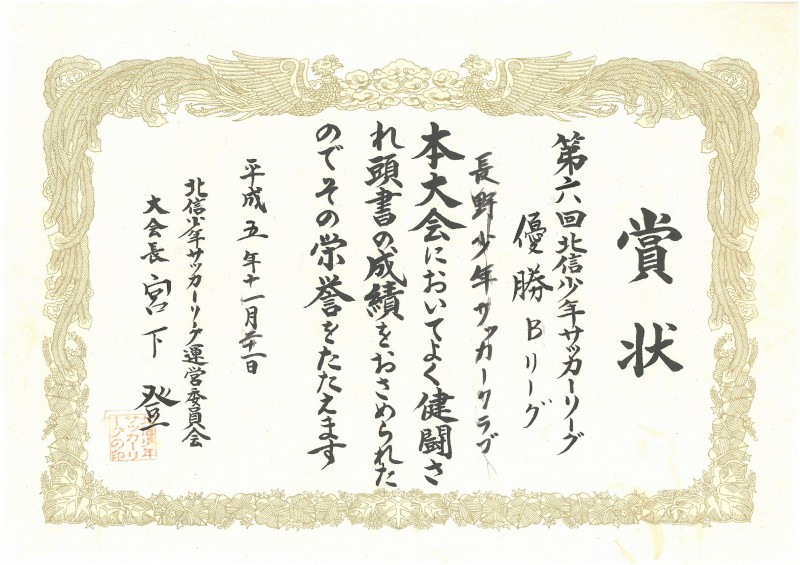 賞状
第六回北信少年サッカーリーグ
優勝 Bリーグ
長野少年サッカークラブ
本大会においてよく健闘さ
れ頭書の成績をおさめられた
のでその栄誉をたたえます
平成五年十一月二十一日
北信少年サッカーリーグ運営委員会
大会長 宮下 登